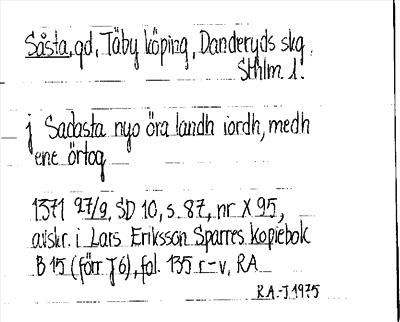 Såsta, gd, Täby köping, Danderyds skg.
Sthlm. l.
j Sadasta nyo öra landh iordh, medh
ene örtog
1371 27/9, SD 10, s. 87, nr X 95,
avskr. i Lars Eriksson Sparres kopiebok
B 15 (förr J 6), fol. 135 r-v, RA
RA-J 1975